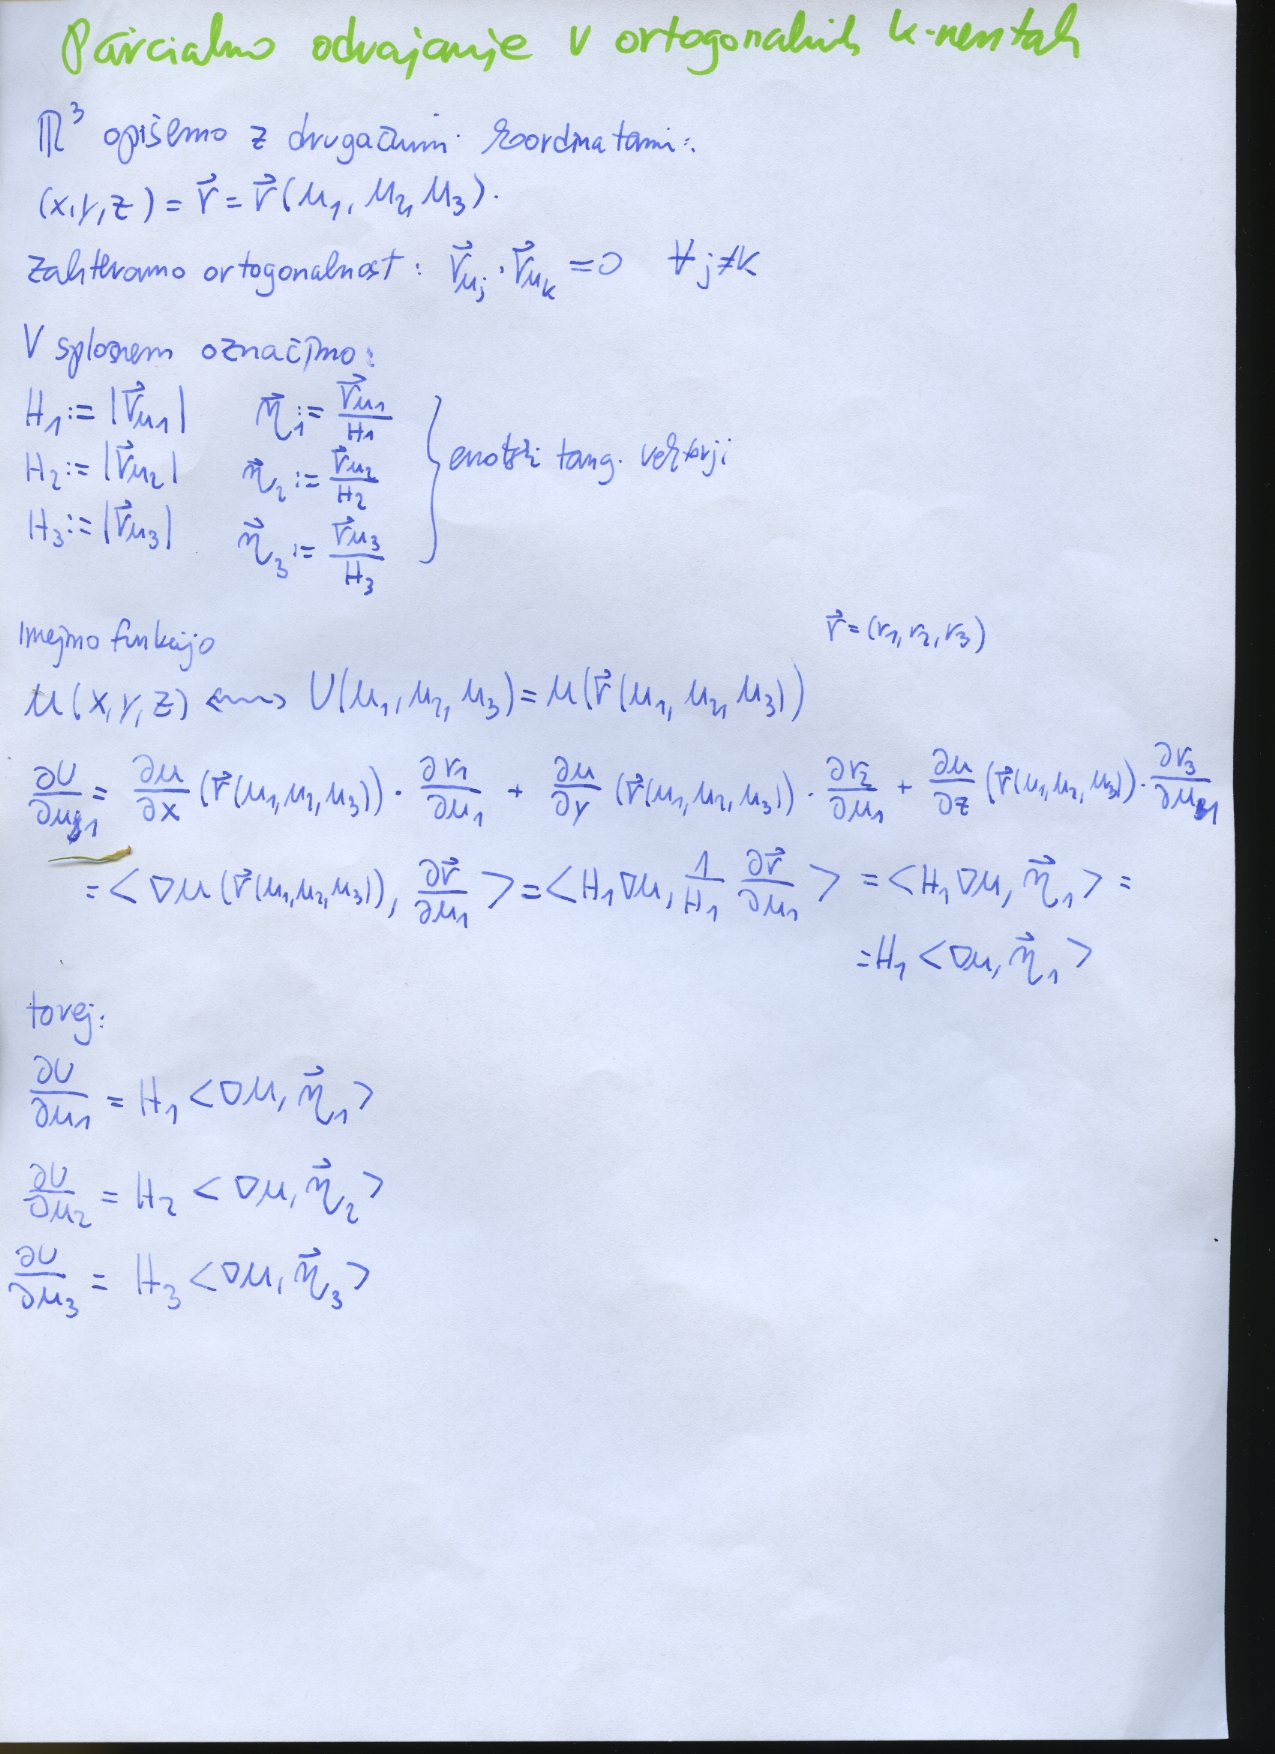 Parcialno odvajanje v ortogonalnih k-nentah
ℝ³ opišemo z drugačnimi koordinatami:
(x,y,z) = r⃗ = r⃗(u₁, u₂, u₃).
Zahtevamo ortogonalnost: r⃗_{u_j} · r⃗_{u_k} = 0 ∀j≠k
V splošnem označimo:
H₁ := |r⃗_{u₁}| η⃗₁ := r⃗_{u₁}/H₁
H₂ := |r⃗_{u₂}| η⃗₂ := r⃗_{u₂}/H₂ } enotski tang. vektorji
H₃ := |r⃗_{u₃}| η⃗₃ := r⃗_{u₃}/H₃
Imejmo funkcijo r⃗ = (r₁, r₂, r₃)
u(x,y,z) ⟷ U(u₁, u₂, u₃) = u(r⃗(u₁, u₂, u₃))
∂U/∂u₁ = ∂u/∂x (r⃗(u₁,u₂,u₃)) · ∂r₁/∂u₁ + ∂u/∂y (r⃗(u₁,u₂,u₃)) · ∂r₂/∂u₁ + ∂u/∂z (r⃗(u₁,u₂,u₃)) · ∂r₃/∂u₁
= <∇u (r⃗(u₁,u₂,u₃)), ∂r⃗/∂u₁> = <H₁∇u, 1/H₁ ∂r⃗/∂u₁> = <H₁∇u, η⃗₁> =
= H₁ <∇u, η⃗₁>
torej:
∂U/∂u₁ = H₁ <∇u, η⃗₁>
∂U/∂u₂ = H₂ <∇u, η⃗₂>
∂U/∂u₃ = H₃ <∇u, η⃗₃>